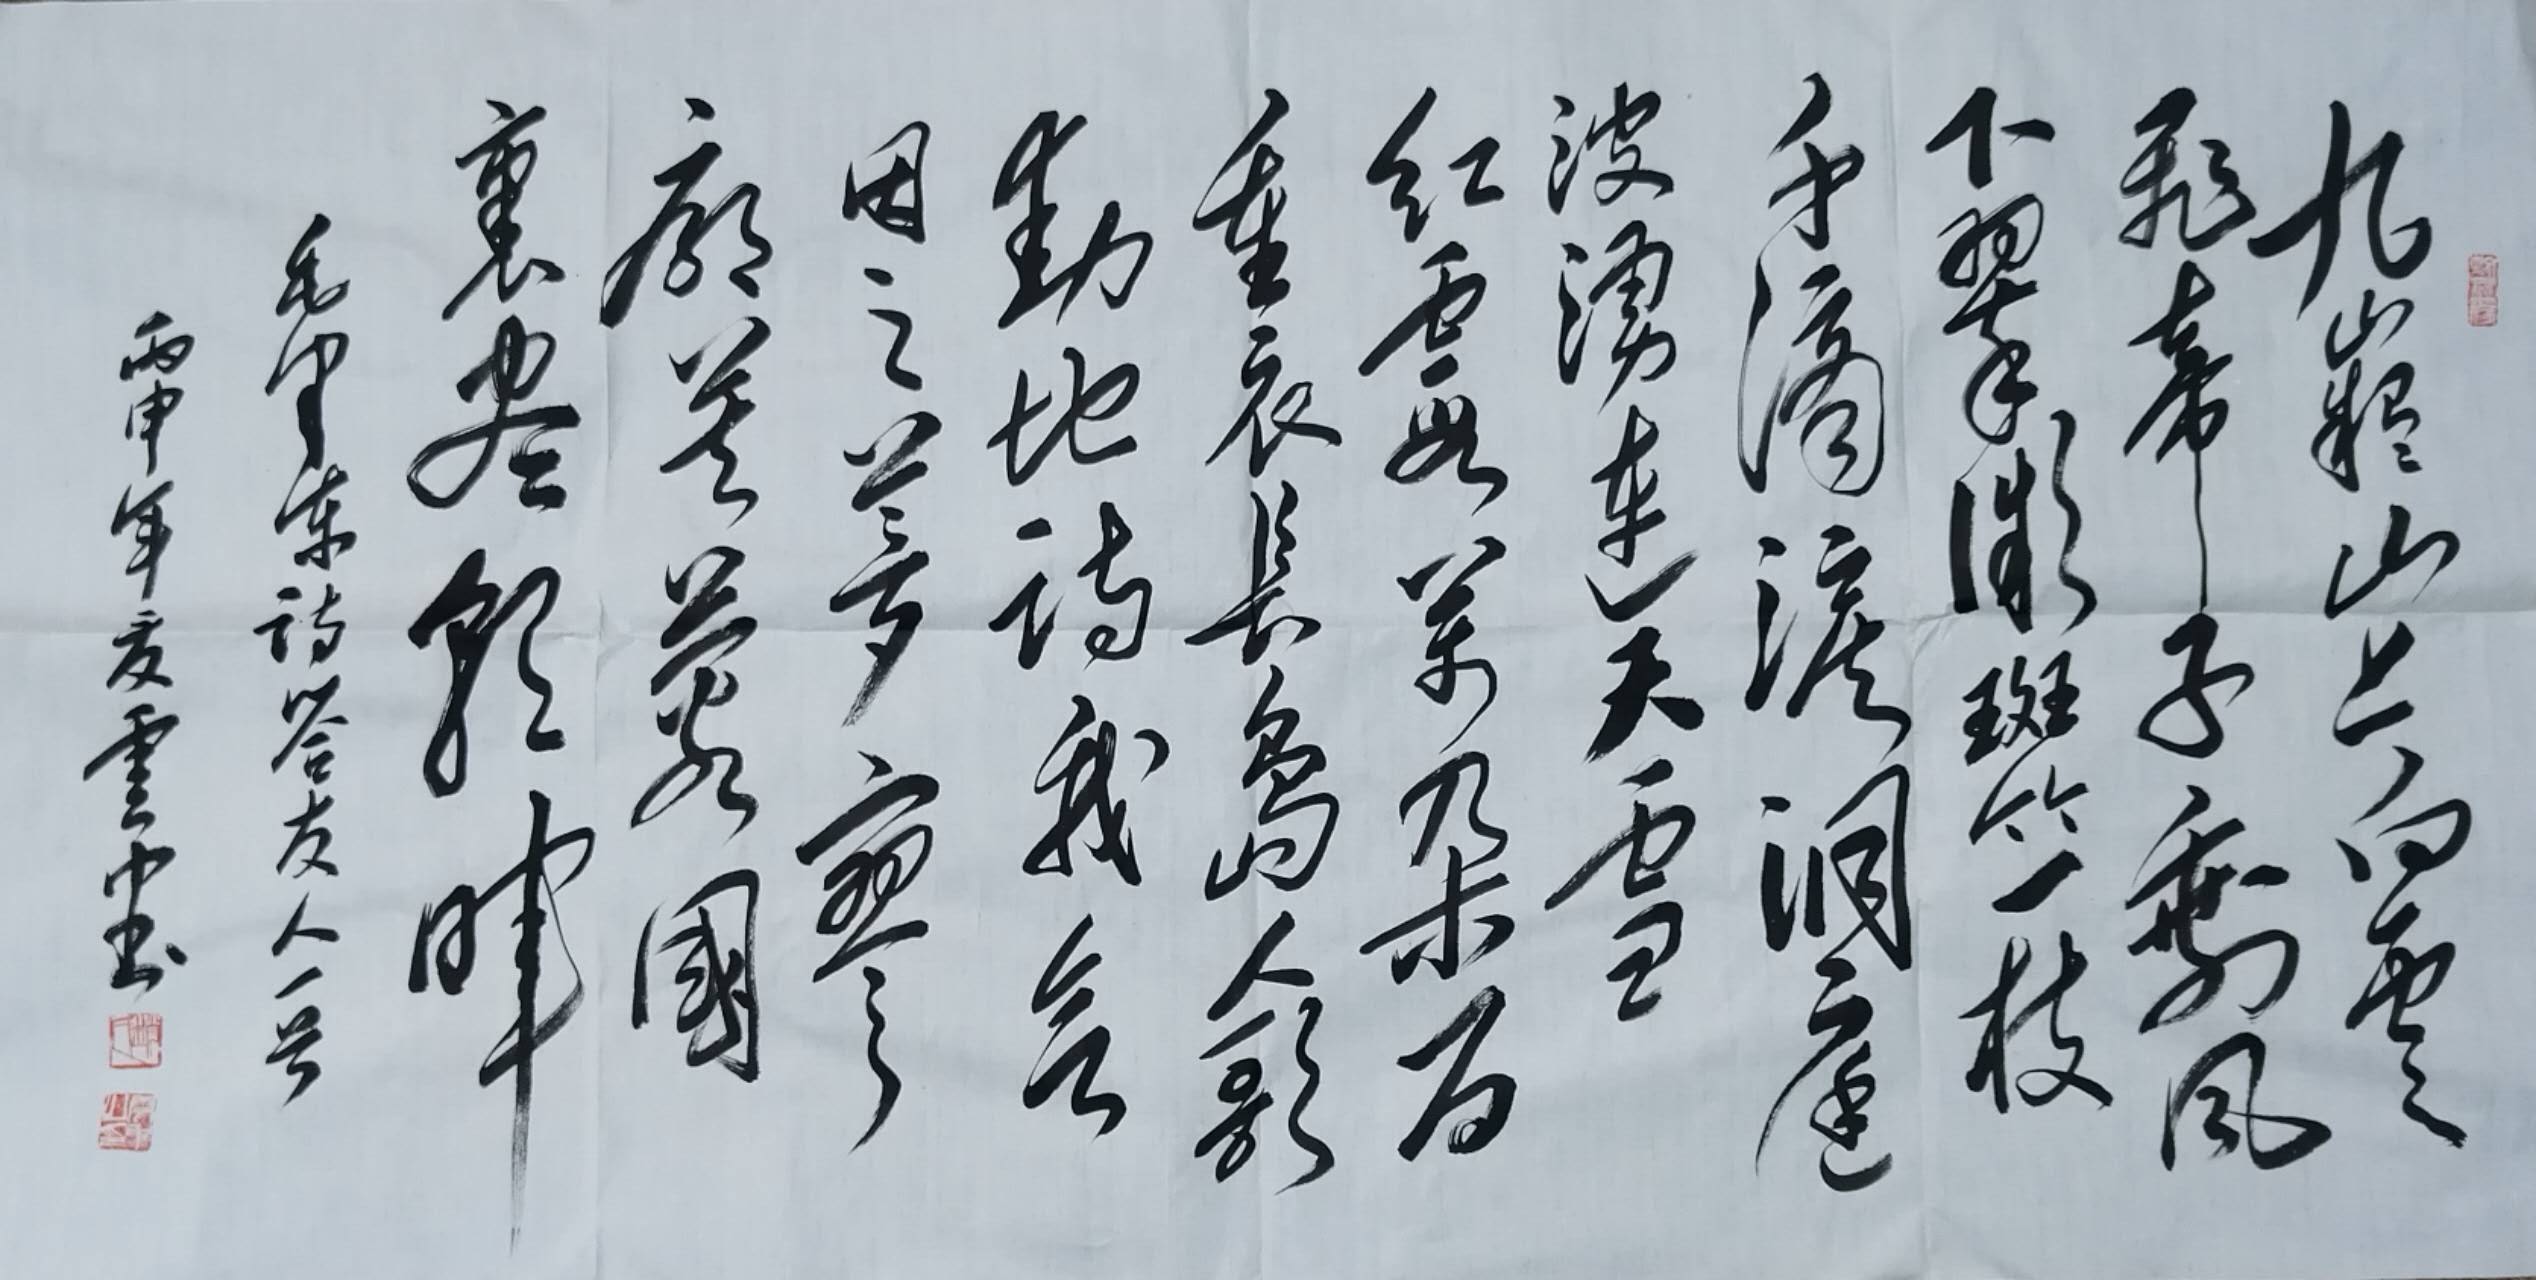 九嶷山上白雲
飛帝子乘风
下翠微斑竹一枝
千滴淚洞庭
波湧連天雪
紅霞萬朵百
重衣長島人歌
動地詩我欲
因之夢寥
廓芙蓉國
裏盡朝暉
毛澤東詩答友人一首
丙申年夏雲中书